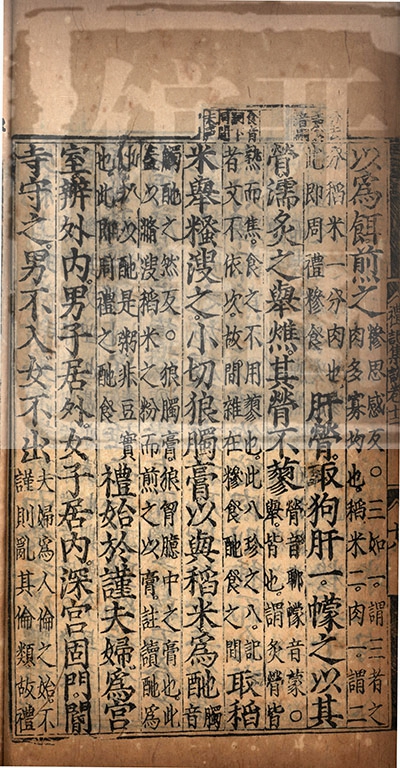 以爲餌煎之
糝思感反○三如一謂三者之
肉多寡均也稻米二肉一謂二
分稻米一分肉也
此即周禮糝食
肝膋取狗肝一幪之以其
膋濡炙之舉燋其膋不蓼
膋音聊幪音蒙○
舉皆也謂炙膋皆
熟而焦食之不用蓼也此八珍之八記
者文不依次故間雜在糝食酏食之間
取稻
米舉糔溲之小切狼臅膏以與稻米爲酏
臅音
觸酏之然反○狼臅膏狼胷臆中之膏也此
蓋以滫溲稻米之粉而煎之以膏註讀酏爲
以酏是粥非豆實
也此即周禮之酏食
禮始於謹夫婦爲宮
室辨外内男子居外女子居内深宮固門閽
寺守之男不入女不出
夫婦爲人倫之始不
謹則亂其倫類故禮